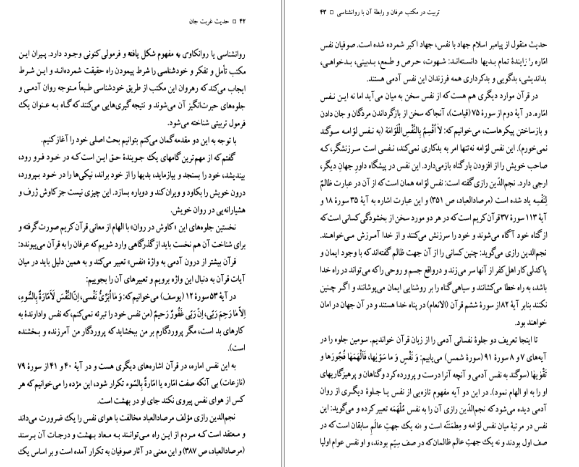 ۴۲ □ حدیث غربت جان
روانشناسی یا روانکاوی به مفهوم شکل یافته و فرمولی کنونی وجود دارد. پیران این
مکتب تأمل و تفکر و خودشناسی را شرط پیمودن راه حقیقت شمرده‌اند و این شرط
ایجاب می‌کند که رهروان این مکتب از طریق خودشناسی طبعاً متوجه روان آدمی و
جلوه‌های حیرت‌انگیز آن می‌شوند و نتیجه‌گیری‌هایی می‌کنند که گاه به عنوان یک
فرمول تربیتی شناخته می‌شود.
با توجه به این دو مقدمه گمان می‌کنم بتوانیم بحث اصلی خود را آغاز کنیم.
گفتم که از مهم‌ترین گامهای یک جویندهٔ حق این است که در خود فرو رود،
بیندیشد، خود را بسنجد و بیازماید، بدیها را از خود براند، نیکی‌ها را در خود بپرورد،
درون خویش را بکاود و ویران کند و دوباره بسازد. این چیزی نیست جز کاوش ژرف و
هشیارانه‌یی در روان خویش.
نخستین جلوه‌های این «کاوش در روان» با الهام از معانی قرآن کریم صورت گرفته و
برای شناخت آن هم نخست باید از گذرگاهی وارد شویم که عرفان را به قرآن می‌پیوندد:
قرآن بیشتر از درون آدمی به واژهٔ «نفس» تعبیر می‌کند و به همین دلیل باید در میان
آیات قرآن به دنبال این واژه برویم و تعبیرهای آن را بجوییم:
در آیهٔ ۵۳ سورهٔ ۱۲ (یوسف) می‌خوانیم که: وَ مَا أُبَرِّئُ نَفْسِی، إِنَّ النَّفْسَ لَأَمّارَةٌ بِالسُّوءِ،
إِلّا مَا رَحِمَ رَبِّی، إِنَّ رَبِّی غَفُورٌ رَحِیمٌ (من نفس خود را تبرئه نمی‌کنم، که نفس وادارندهٔ به
کارهای بد است، مگر پروردگارم بر من ببخشاید که پروردگار من آمرزنده و بخشنده
است).
به این نفس اماره، در قرآن اشاره‌های دیگری هست و در آیهٔ ۴۰ و ۴۱ از سورهٔ ۷۹
(نازعات) بی آنکه صفت امّاره یا امّارةٌ بالسّوء تکرار شود، این مژده را می‌خوانیم که هر
کس از هوای نفس پیروی نکند جای او در بهشت است.
نجم‌الدین رازی مؤلف مرصادالعباد مخالفت با هوای نفس را یک ضرورت می‌داند
و معتقد است که مردم از این راه می‌توانند به معاد بهشت و درجات آن برسند
(مرصادالعباد، ص ۳۸۷) و این معنی در آثار صوفیان به تکرار آمده است و بر اساس یک
تربیت در مکتب عرفان و رابطهٔ آن با روانشناسی □ ۴۳
حدیث منقول از پیامبر اسلام جهاد با نفس، جهاد اکبر شمرده شده است. صوفیان نفس
امّاره را زایندهٔ تمام بدیها دانسته‌اند: شهوت، حرص و طمع، بدبینی، بدخواهی،
بداندیشی، بدگویی و بدکرداری همه فرزندان این نفس آدمی هستند.
در قرآن موارد دیگری هم هست که از نفس سخن به میان می‌آید اما نه این نفس
امّاره. در آیهٔ دوم از سورهٔ ۷۵ (قیامت)، آنجا که سخن از بازگرداندن مردگان و جان دادن
و بازساختن پیکرهاست، می‌خوانیم که: لَا أُقْسِمُ بِالنَّفْسِ اللَّوّامَةِ (به نفس لوّامه سوگند
نمی‌خورم). این نفس لوّامه نه‌تنها امر به بدکاری نمی‌کند، نفسی است سرزنشگر، که
صاحب خویش را از افزودن بار گناه بازمی‌دارد. این نفس در پیشگاه داورِ جهانِ دیگر،
ارجی دارد. نجم‌الدین رازی گفته است: نفس لوّامه همان است که از آن در عبارت ظالمٌ
لِنَفْسِه یاد شده است (مرصادالعباد، ص ۳۵۱) و این عبارت اشاره به آیهٔ ۳۵ سورهٔ ۱۸ و
آیهٔ ۱۱۳ سورهٔ ۳۷ قرآن کریم است که در هر دو مورد سخن از بخشودگی کسانی است که
از گناه خود آگاه می‌شوند و خود را سرزنش می‌کنند و از خدا آمرزش می‌خواهند.
نجم‌الدین رازی می‌گوید: چنین کسانی را از آن جهت ظالم گفته‌اند که با وجود ایمان و
پاکدلی کار اهل کفر از آنها سر می‌زند و درواقع جسم و روحی را که می‌تواند در راه خدا
باشد، به راه خطا می‌کشانند و سیاهی گناه را بر روشنایی ایمان می‌پوشانند و اگر چنین
نکنند بنابر آیهٔ ۸۲ از سورهٔ ششم قرآن (الانعام) در پناه خدا هستند و در آن جهان در امان
خواهند بود.
تا اینجا تعریف دو جلوهٔ نفسانی آدمی را از زبان قرآن خواندیم. سومین جلوه را در
آیه‌های ۷ و ۸ سورهٔ ۹۱ (سورهٔ شمس) می‌یابیم: وَ نَفْسٍ وَ مَا سَوّیٰهَا، فَأَلْهَمَهَا فُجُورَهَا وَ
تَقْوٰیهَا (سوگند به نفس آدمی و آنچه آن را درست و پرورده کرد و گناهان و پرهیزگاریهای
او را به او الهام نمود). در این دو آیه مفهوم تازه‌یی از نفس یا جلوهٔ دیگری از روان
آدمی دیده می‌شود که نجم‌الدین رازی آن را به نفس مُلْهَمَه تعبیر کرده و می‌گوید: این
نفس در مرتبهٔ میان نفس لوّامه و مطمئنّه است و «نه یک جهتِ عالَمِ سابقان است که در
صف اول بودند و نه یک جهتِ عالم ظالمان که در صف سیّم بودند، و او نفس عوام اولیا